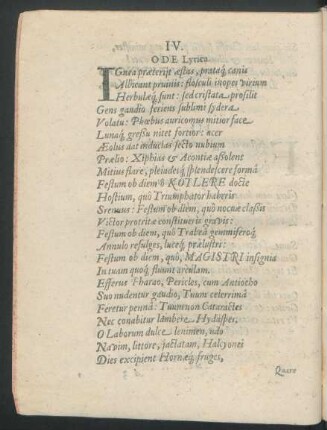 IV.
ODE Lyrica
IGnea præterijt æstus, prataq́; canis
Albicant pruinis: flosculi inopes virium
Herbulæq́; sunt: sed cristata prosilit
Gens gaudio feriens sublimi sydera
Volatu: Phœbus auricomus mitior face
Lunaq́; gressu nitet fortior: acer
Æolus aat inducias secto nubium
Prælio: Xiphias & Acontiæ assolent
Mitius flare, pleiadesq́; splendescere forma
Festum ob diem ô KOTLERE docte
Hostium, quò Triumphator haberis
Strenuus: Festum ob diem, quò nocuæ classis
Victor protritæ constitueris gravis:
Festum ob diem, quò Trabeâ gemmiferoq́;
Annulo refulges, luceq́; prælustri:
Festum ob diem, quò, MAGISTRI insignia
In tuam quoq́; fluunt arculam.
Efferus Pharao, Pericles, cum Antiocho
Suo mdentur gaudio, Tuum celerrimâ
Feretur pennâ: Tuum non Cataractes
Nec conabitur lambere Hydaspes;
O Laborum dulce lenimen, udo
Navim, littore, jactatam, Halcyonei
Dies excipient Hornæq́; fruges,
Quare